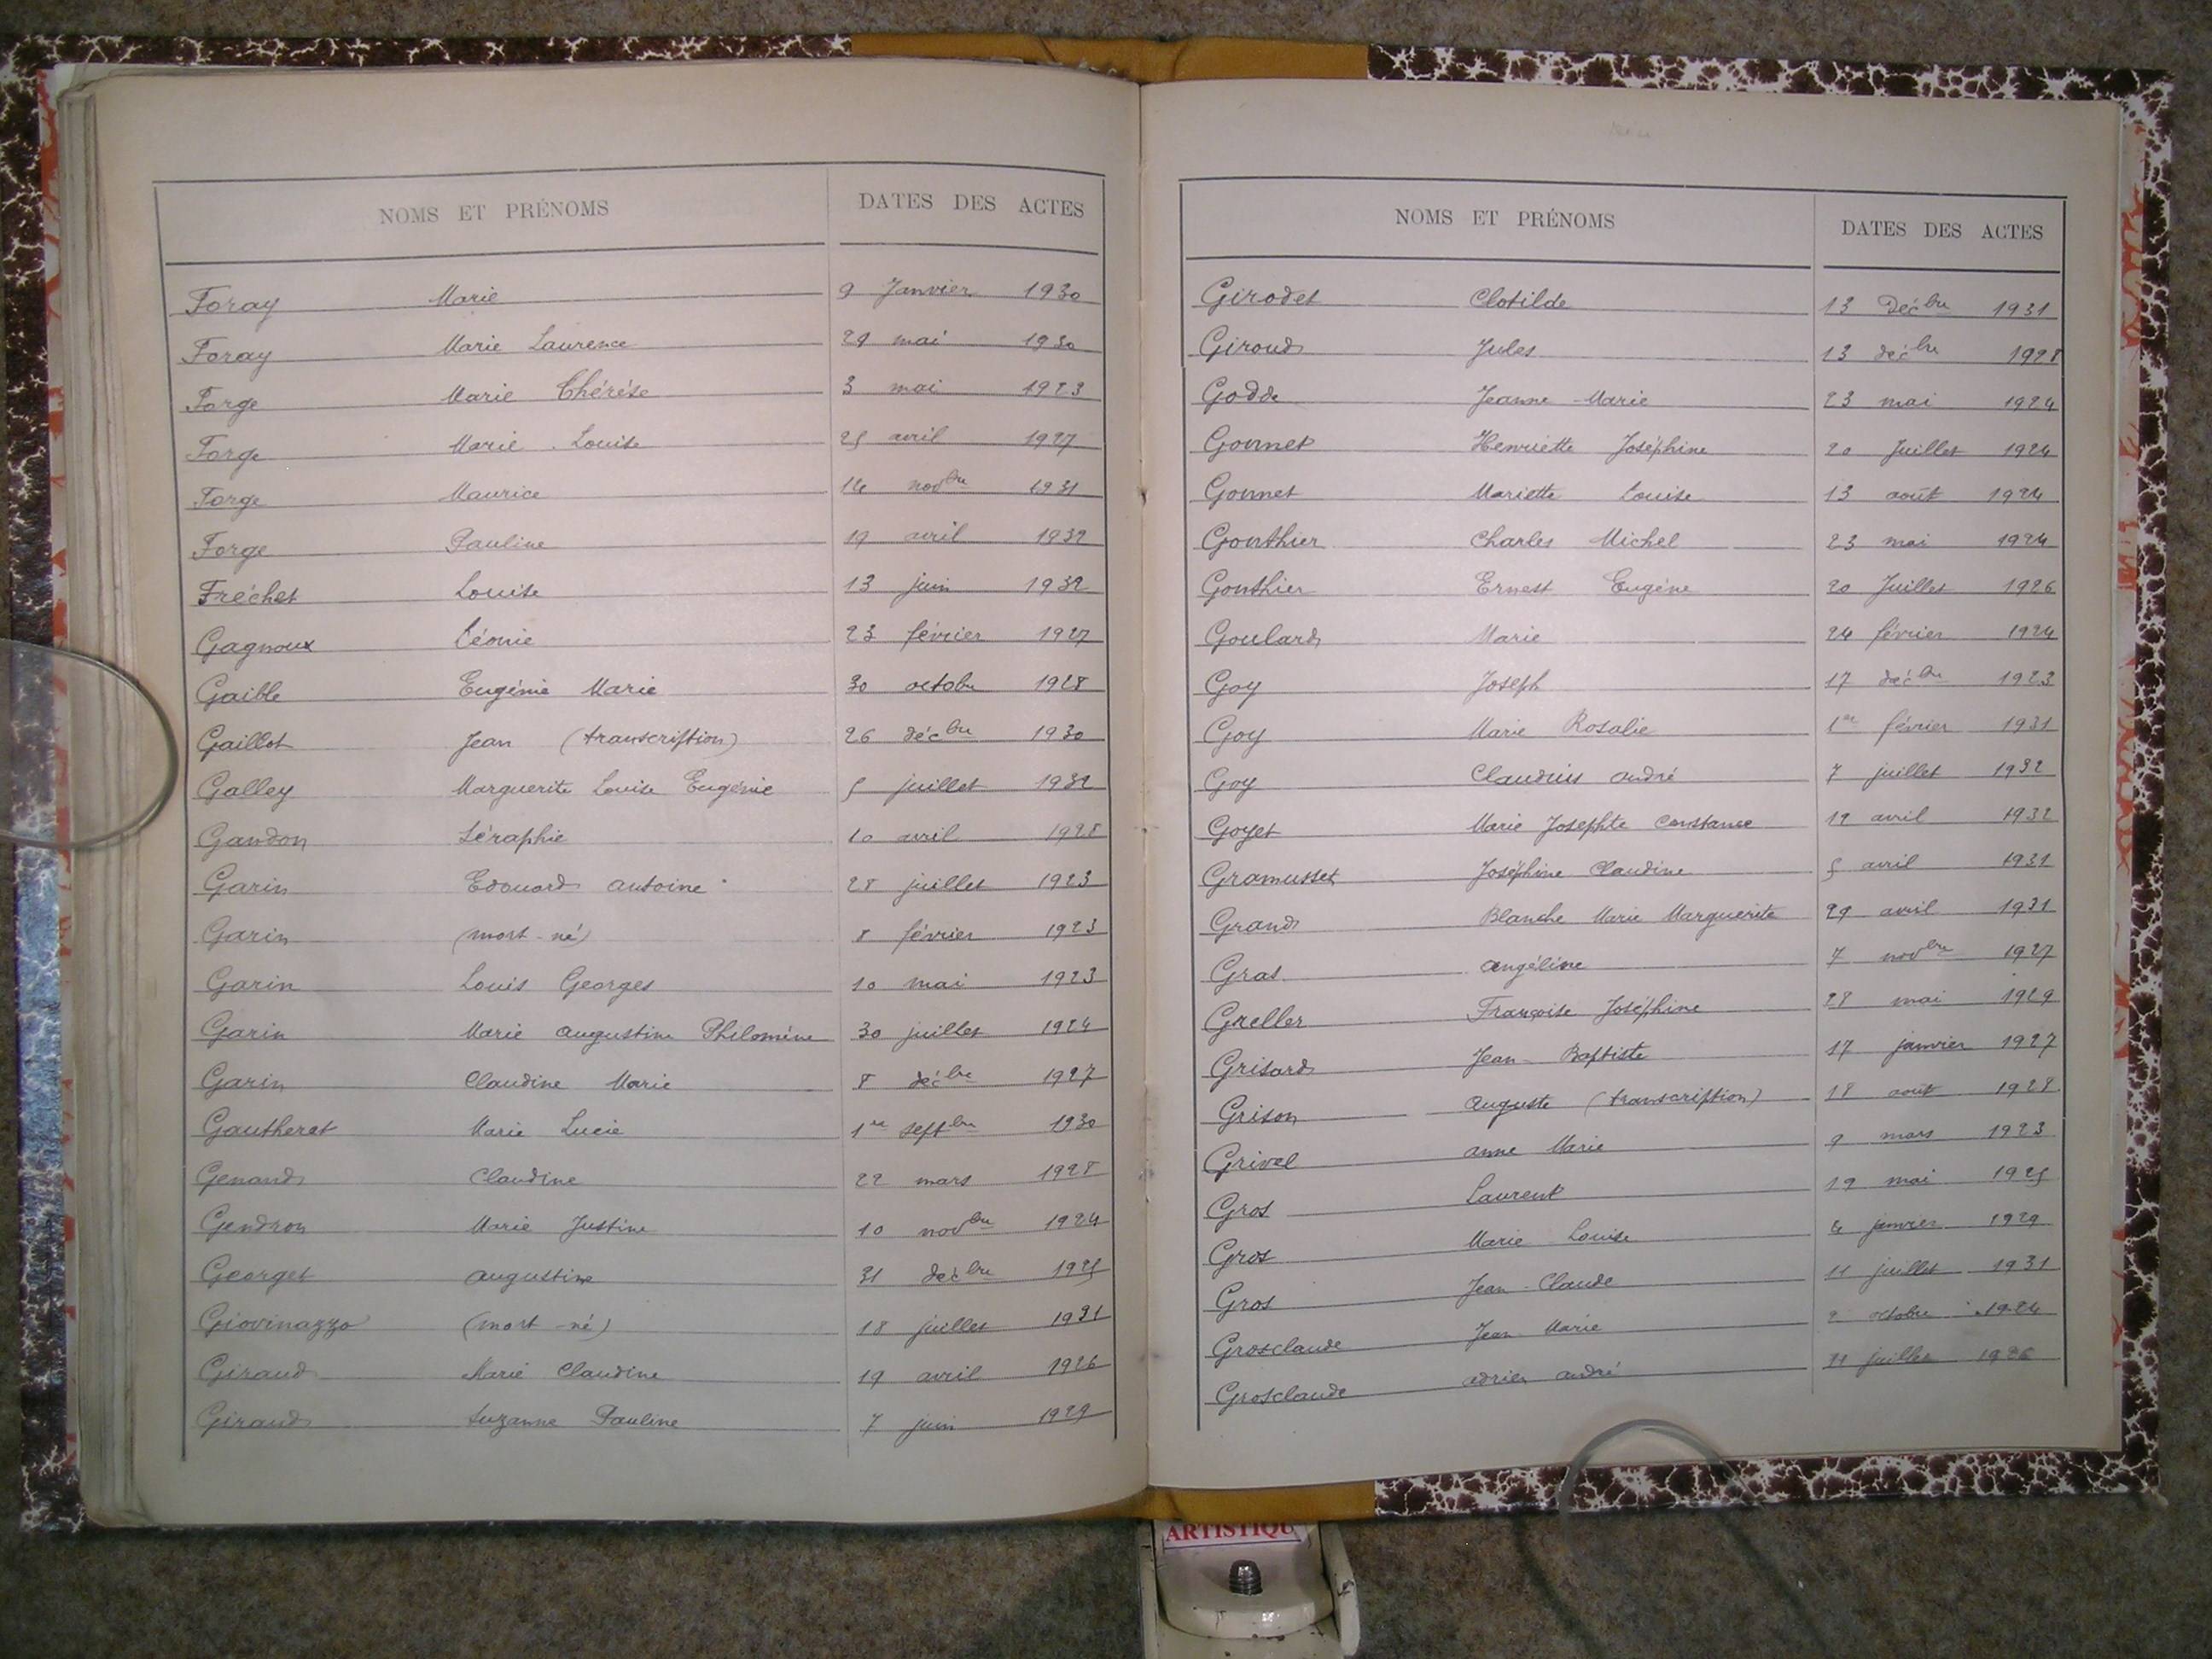 NOMS ET PRÉNOMS DATES DES ACTES
Foray Marie 9 Janvier 1930
Foray Marie Laurence 29 mai 1930
Forge Marie Thérèse 3 mai 1923
Forge Marie Louise 25 avril 1927
Forge Maurice 14 novbre 1931
Forge Pauline 19 avril 1932
Fréchet Louise 13 juin 1932
Gagnoux Léonie 23 février 1927
Gaible Eugénie Marie 30 octobre 1928
Gaillot Jean (transcription) 26 décbre 1930
Galley Marguerite Louise Eugénie 5 juillet 1932
Gandon Séraphie 10 avril 1928
Garin Edouard antoine 28 juillet 1923
Garin (mort-né) 8 février 1923
Garin Louis Georges 10 mai 1923
Garin Marie augustine Philomène 30 juillet 1924
Garin Claudine Marie 8 décbre 1927
Gautheret Marie Lucie 1er septbre 1930
Genaud Claudine 22 mars 1928
Gendron Marie Justine 10 novbre 1924
Georget augustine 31 décbre 1925
Giovinazzo (mort-né) 18 juillet 1931
Giraud Marie Claudine 19 avril 1926
Giraud Suzanne Pauline 7 juin 1929
NOMS ET PRÉNOMS DATES DES ACTES
Girodet Clotilde 13 Décbre 1931
Giroud Jules 13 décbre 1928
Godde Jeanne-Marie 23 mai 1924
Gonnet Henriette Joséphine 20 Juillet 1924
Gonnet Mariette Louise 13 août 1924
Gonthier Charles Michel 23 mai 1924
Gonthier Ernest Eugène 20 Juillet 1926
Goulard Marie 24 février 1924
Goy Joseph 17 décbre 1923
Goy Marie Rosalie 1er février 1931
Goy Claudius andré 7 juillet 1932
Goyet Marie Josephte Constance 19 avril 1932
Gramusset Joséphine Claudine 5 avril 1931
Grand Blanche Marie Marguerite 29 avril 1931
Gras angéline 7 novbre 1927
Greller Françoise Joséphine 28 mai 1929
Grisard Jean-Baptiste 17 janvier 1927
Grison auguste (transcription) 18 août 1928
Grivel anne Marie 9 mars 1923
Gros Laurent 19 mai 1925
Gros Marie Louise 4 janvier 1929
Gros Jean-Claude 11 juillet 1931
Grosclaude Jean Marie 2 octobre 1924
Grosclaude adrien andré 11 juillet
ARTISTIQU